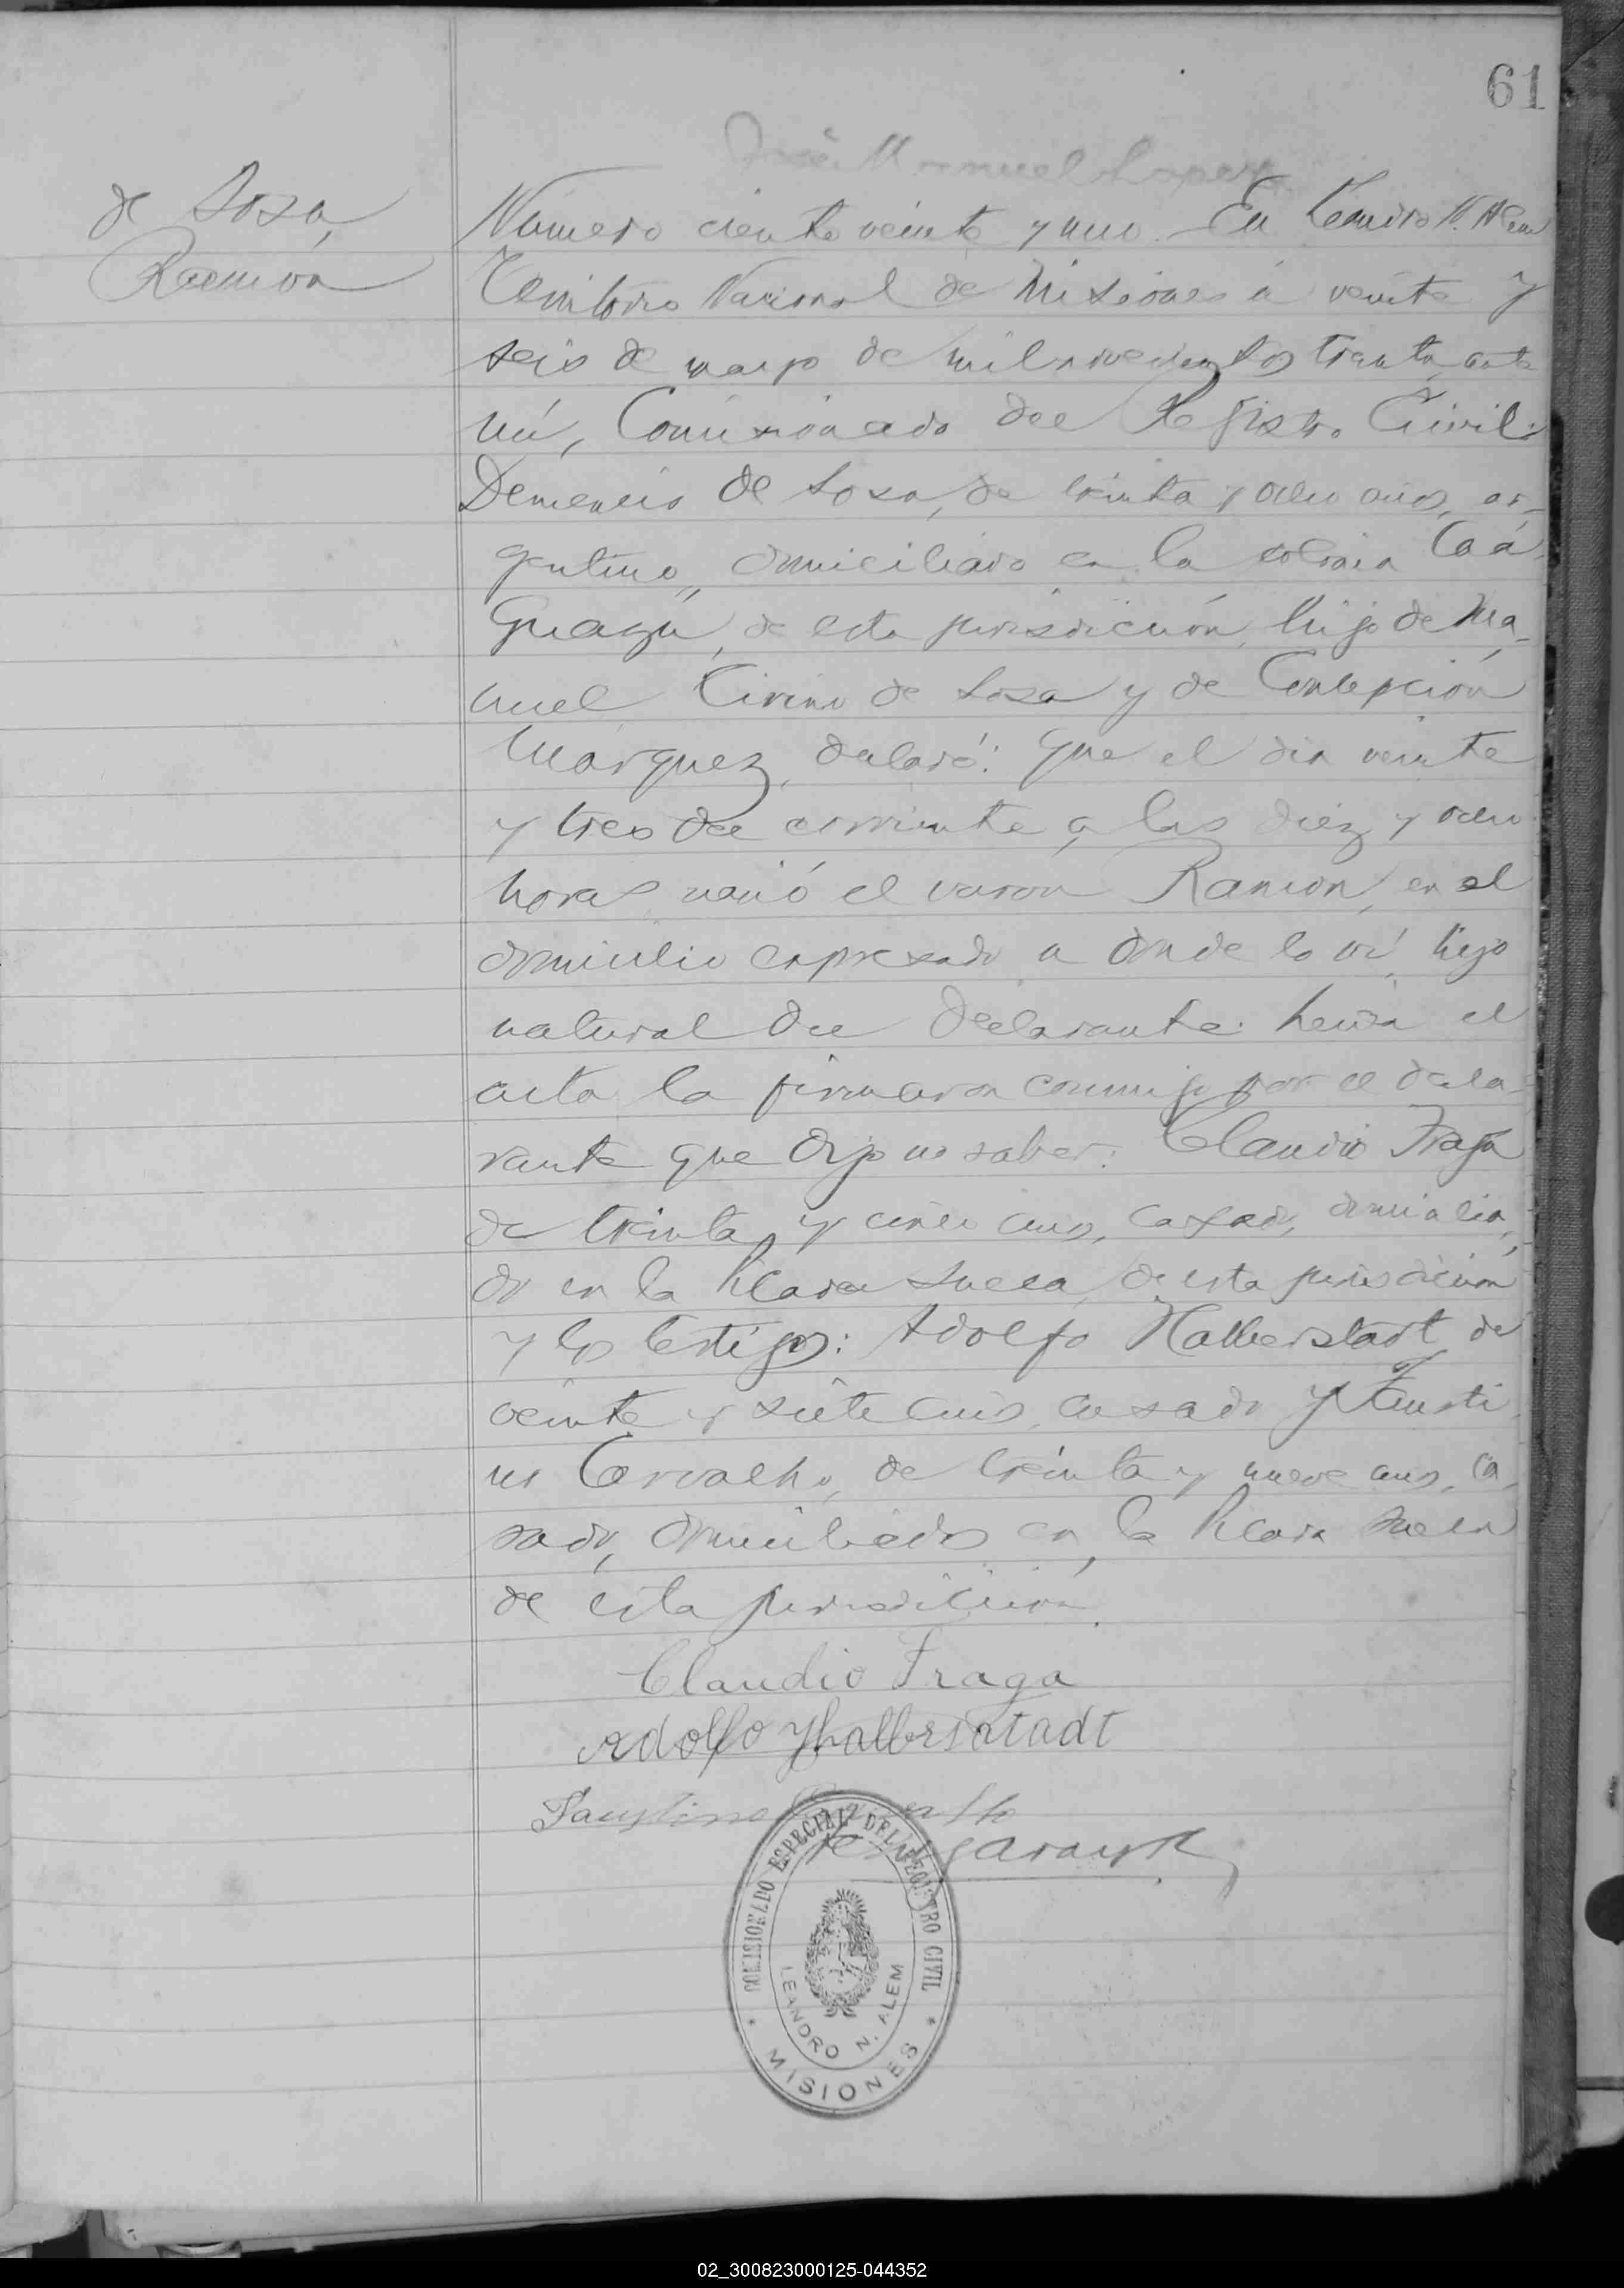 61
José Manuel Lopez
de Soza,
Ramón
Número ciento veinte y uno. En Leandro N. Alem
Territorio Nacional de Misiones á veinte y
seis de marzo de mil novecientos treinta, ante
mí, Comisionado del Registro Civil:
Demencio de Soza, de treinta y ocho años, ar-
gentino, domiciliado en la colonia Caá
Guazú, de esta jurisdicción, hijo de Ma-
nuel Cirino de Soza y de Concepción
Márquez, declaró: Que el día veinte
y tres del corriente, a las diez y ocho
horas nació el varon Ramón, en el
domicilio expresado a donde lo ví, hijo
natural del declarante: leida el
acta la firmaron conmigo por el decla-
rante que dijo no saber: Claudio Fraga
de treinta y cinco años, casado, domicilia-
do en la Picada Sueca, de esta jurisdicción
y los testigos: Adolfo Halberstadt de
veinte y siete años, casado y Fausti-
no Carvalho, de treinta y nueve años, ca-
sado, domiciliados en la Picada Sueca
de esta jurisdicción.
Claudio Fraga
Adolfo Halberstadt
Faustino
COMISIONADO ESPECIAL DEL REGISTRO CIVIL
LEANDRO N. ALEM
* MISIONES *
02_300823000125-044352